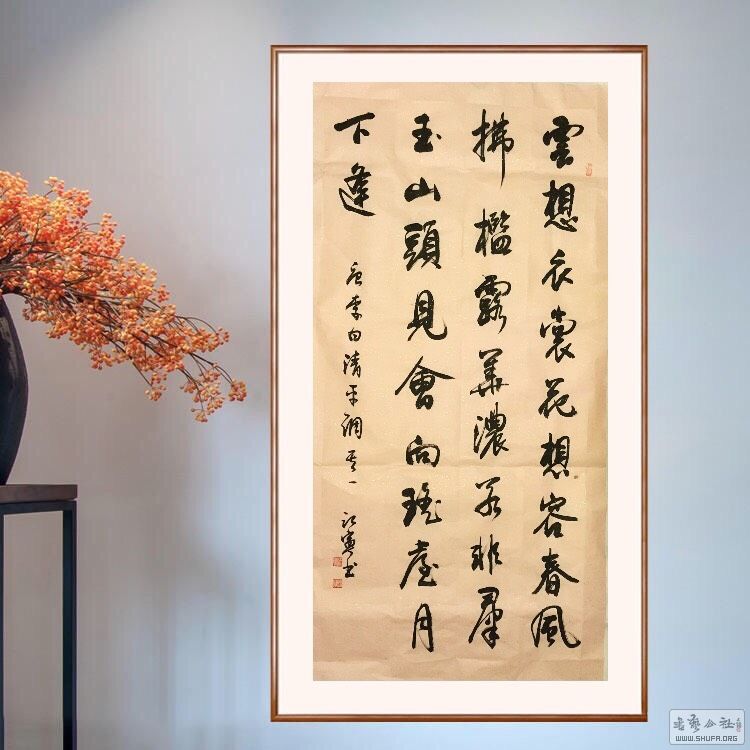 雲想衣裳花想容春風
拂檻露華濃若非羣
玉山頭見會向瑶臺月
下逢
唐李白清平調其一
書藝公社
WWW.SHUFA.ORG